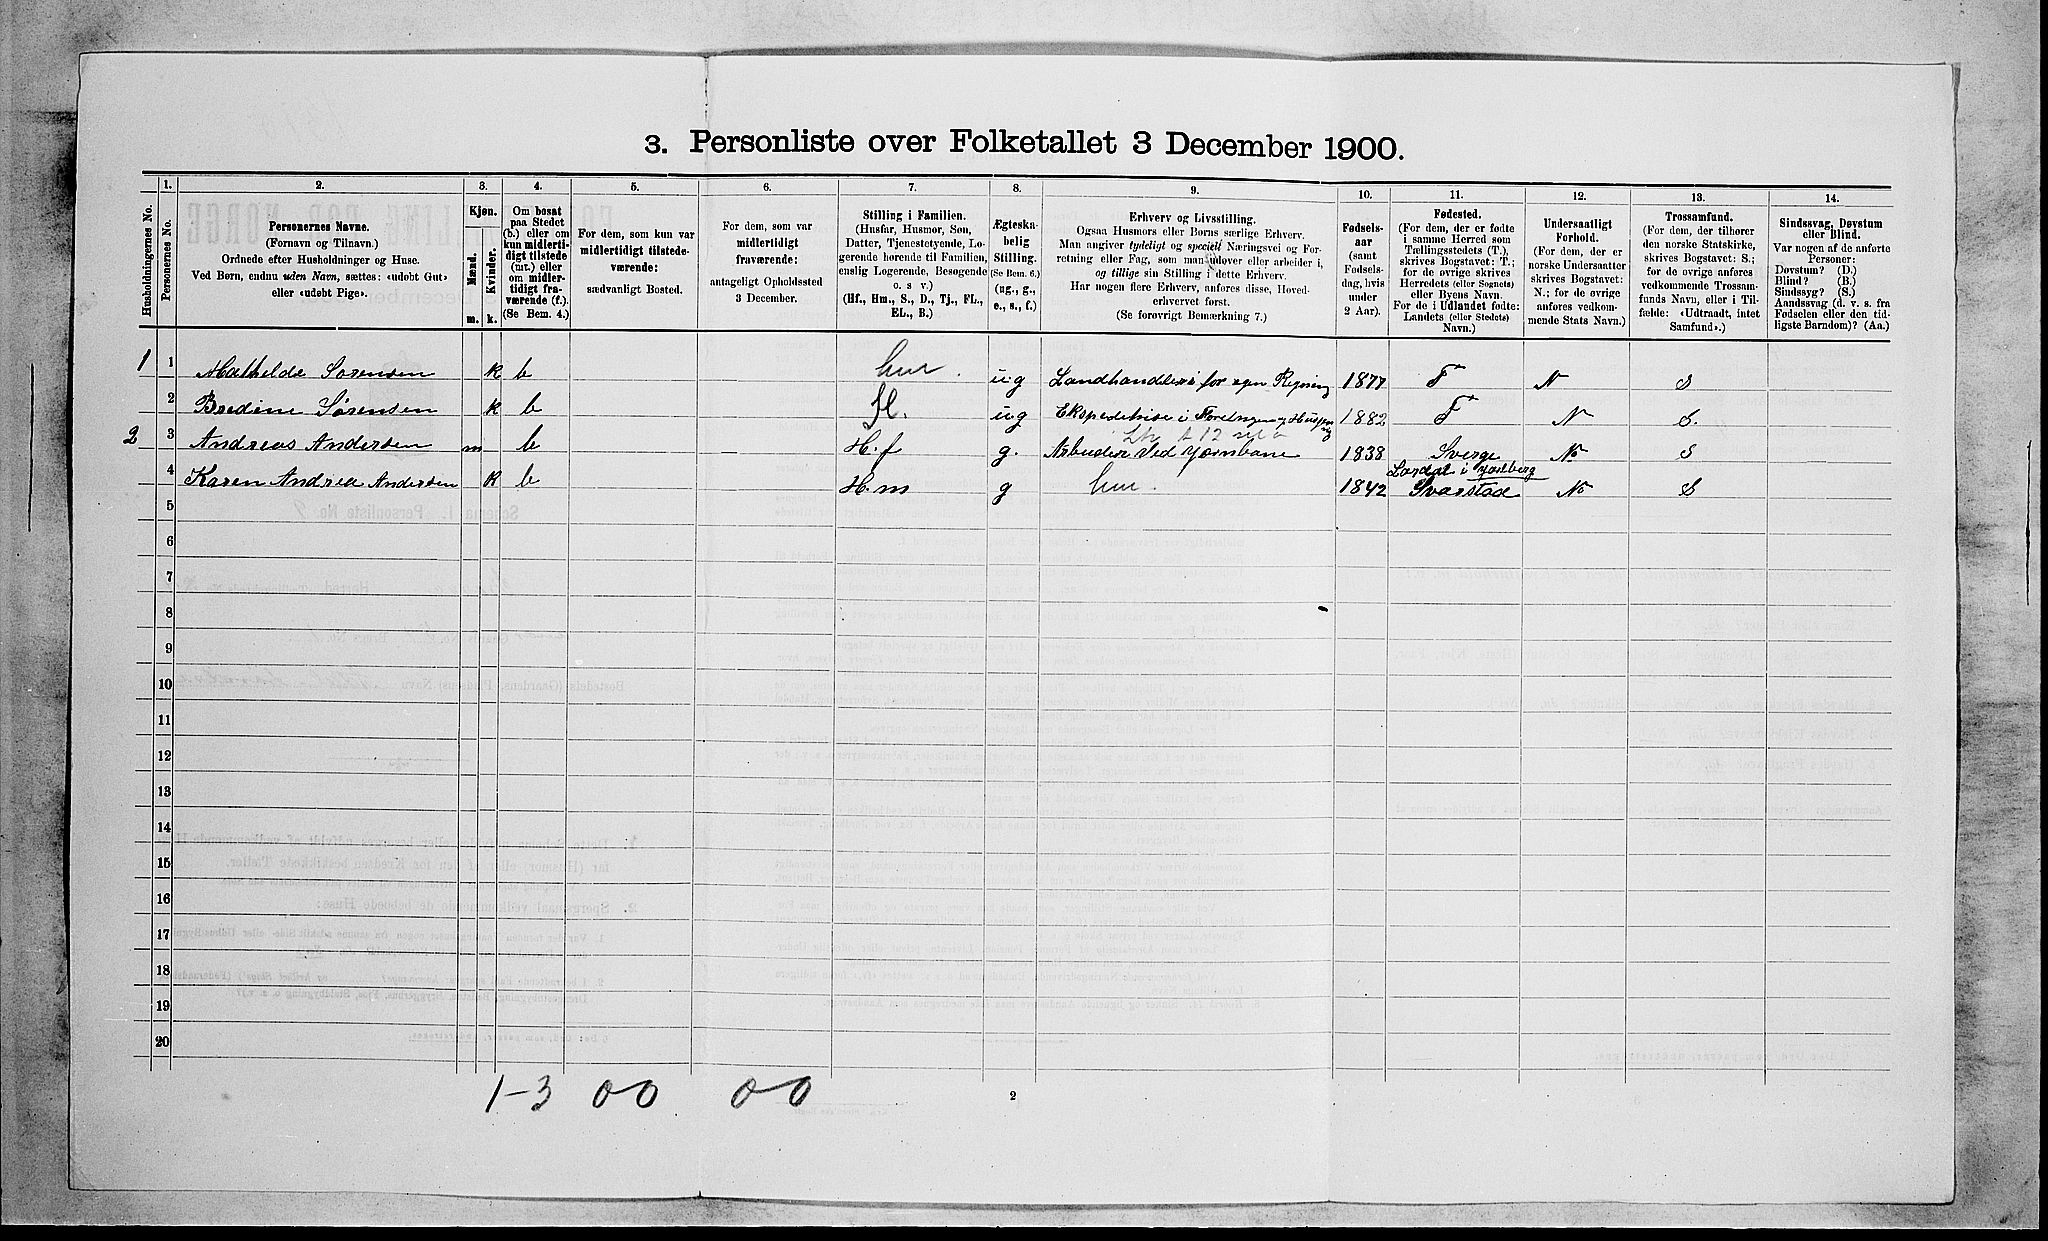 3. Personliste over Folketallet 3 December 1900.
Husholdningernes No.
1.
Personernes No.
2.
Personernes Navne.
(Fornavn og Tilnavn.)
Ordnede efter Husholdninger og Huse.
Ved Børn, endnu uden Navn, sættes: «udøbt Gut»
eller «udøbt Pige».
3.
Kjøn.
Mænd.
Kvinder.
m.
k.
4.
Om bosat
paa Stedet
(b.) eller om
kun midlerti-
digt tilstede
(mt.) eller
om midler-
tidigt fra-
værende (f.).
(Se Bem. 4.)
5.
For dem, som kun var
midlertidigt tilstede-
værende:
sædvanligt Bosted.
6.
For dem, som var
midlertidigt
fraværende:
antageligt Opholdssted
3 December.
7.
Stilling i Familien.
(Husfar, Husmor, Søn,
Datter, Tjenestetyende, Lo-
gerende hørende til Familien,
enslig Logerende, Besøgende
o. s v.)
(Hf., Hm., S., D., Tj., FL.,
EL., B.)
8.
Ægteska-
belig
Stilling.
(Se Bem. 6.)
(ug., g.,
e., s., f.)
9.
Erhverv og Livsstilling.
Ogsaa Husmors eller Børns særlige Erhverv.
Man angiver tydeligt og specielt Næringsvei og For-
retning eller Fag, som man udøver eller arbeider i,
og tillige sin Stilling i dette Erhverv.
Har nogen flere Erhverv, anføres disse, Hoved-
erhvervet først.
(Se forøvrigt Bemærkning 7.)
10.
Fødsels-
aar
(samt
Fødsels-
dag, hvis
under
2 Aar).
11.
Fødested.
(For dem, der er fødte
i samme Herred som
Tællingsstedets (T.),
skrives Bogstavet: T.;
for de øvrige skrives
Herredets (eller Sognets)
eller Byens Navn.
For de i Udlandet fødte:
Landets (eller Stedets)
Navn.)
12.
Undersaatligt
Forhold.
(For dem, der er
norske Undersaatter
skrives Bogstavet:
N.; for de øvrige
anføres vedkom-
mende Stats Navn.)
13.
Trossamfund.
(For dem, der tilhører
den norske Statskirke,
skrives Bogstavet: S.;
for de øvrige anføres
vedkommende Trossam-
funds Navn, eller i Til-
fælde: «Udtraadt, intet
Samfund».)
14.
Sindssvag, Døvstum
eller Blind.
Var nogen af de anførte
Personer:
Døvstum? (D.)
Blind? (B.)
Sindssyg? (S.)
Aandssvag (d. v. s. fra
Fødselen eller den tid-
ligste Barndom)? (Aa.)
1 1 Mathelde Sørensen k b hm . ug Landhandleri for egen Regning 1877 T N S
2 Bredine Sørensen k b Sl. ug Ekspeditrise i Foretningen 1882 T N S.
2 3 Andreas Andersen m b H.f g. Arbeider Ved Jærnbane 1838 Sverge No S
4 Karen Andrea Andersen k b H.m g hm. 1842 Lardal i Jarlberg
Svarstad No S
5
6
7
8
9
10
11
12
13
14
15
16
17
18
19
20
1-3 00 00
2